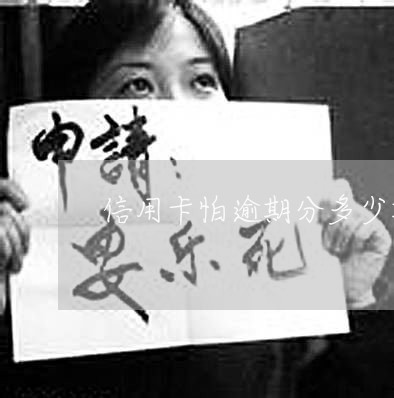 申請：
信用卡怕逾期分多少
安乐死